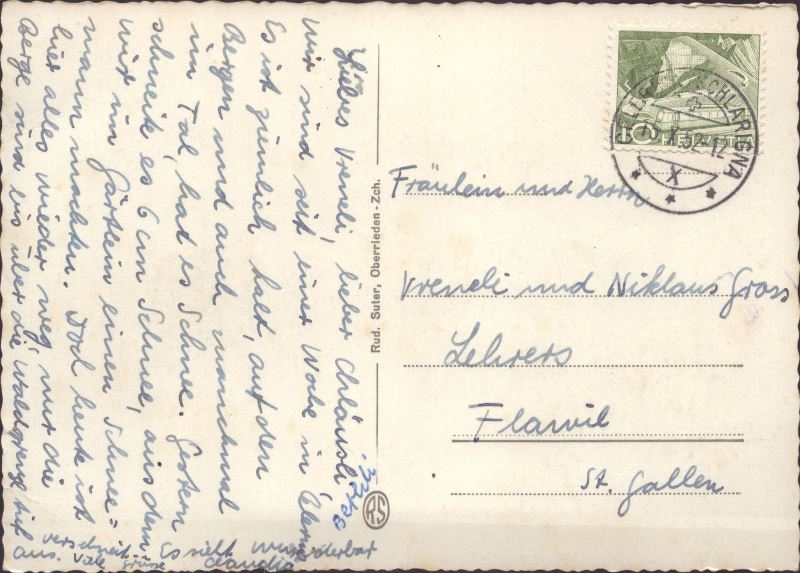 Liebes Vreneli, lieber Chläusli,
wir sind seit einer Woche in Celerina
Es ist ziemlich kalt, auf den
Bergen und auch manchmal
im Tal, hat es Schnee. Gestern
schneite es 6 cm Schnee, aus dem
wir im Gärtlein einen Schnee=
mann machten. Doch heute ist
hier alles wieder weg, nur die
Berge sind bis über die Waldgrenze tief
verschneit. Es sieht wunderbar
aus. Viele Grüsse Claudia
Rud. Suter, Oberrieden-Zch.
RS
CELERINA SCHLARIGNA
X.52-12
X
10
Fräulein und Herrn
Vreneli und Niklaus Gross
Lehrers
Flawil
St. Gallen